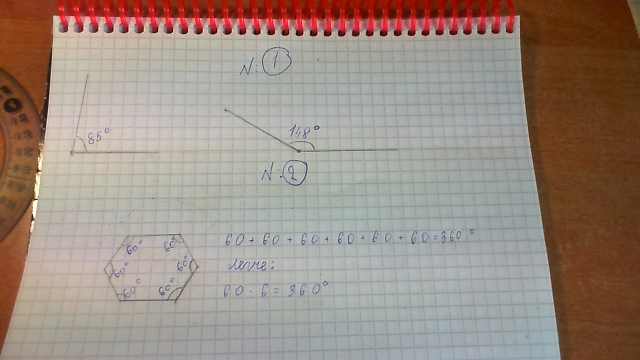 N: 1
85° 148°
N: 2
60° 60°
60° 60°
60° 60°
60 + 60 + 60 + 60 + 60 + 60 = 360°
легче:
60 · 6 = 360°